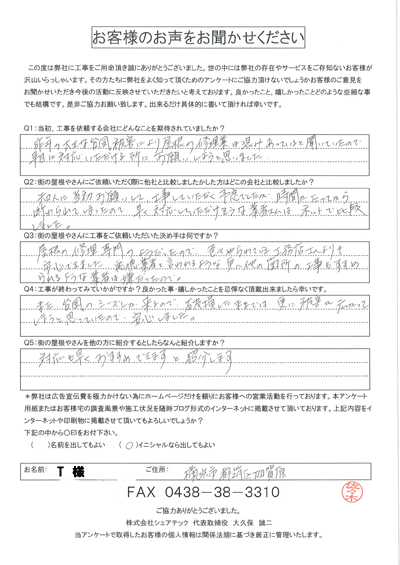 お客様のお声をお聞かせください
この度は弊社に工事をご用命頂き誠にありがとうございました。世の中には弊社の存在やサービスをご存知ないお客様が
沢山いらっしゃいます。その方たちに弊社をよく知って頂くためのアンケートにご協力頂けないでしょうかお客様のご意見を
お聞かせいただき今後の活動に反映させていただきたいと考えております。良かったこと、嬉しかったことどのような些細な事
でも結構です。是非ご協力お願い致します。出来るだけ具体的に書いて頂ければ幸いです。
Q1:当初、工事を依頼する会社にどんなことを期待されていましたか?
昨年の大きな台風被害により屋根の修理業は混みあっていると聞いていたので
早目に対応いただける所にお願いしようと思いました
Q2:街の屋根やさんにご依頼いただく際に他社と比較しましたか した方はどこの会社と比較しましたか?
知人に当初お願いして、工事していただく予定でしたが、時間がたってから
断わられてしまったので 早く対応していただけそうな業者さんは ネットで比較
しました。
Q3:街の屋根やさんに工事をご依頼いただいた決め手は何ですか?
屋根の修理専門のようだったので
業者は嫌だったので。
Q4:工事が終わってみていかがですか?良かった事・嬉しかったことを忌憚なく頂戴出来ましたら幸いです。
また、台風のシーズンが来るので 破損したままでは 更に被害が広がって
しまうと思っていたので 安心しました。
Q5:街の屋根やさんを他の方に紹介するとしたらなんと紹介しますか?
対応も早く おすすめできますと紹介します
*弊社は広告宣伝費を極力かけない為にホームページだけを頼りにお客様への営業活動を行っております。本アンケート
用紙またはお客様宅の調査風景や施工状況を随時ブログ形式のインターネットに掲載させて頂いております。上記内容をイ
ンターネットや印刷物に掲載させて頂いてもよろしいでしょうか?
下記の中から〇印をお付下さい。
( )名前を出してもよい (〇)イニシャルなら出してもよい
お名前: T 様 ご住所: 横浜市都筑区加賀原
FAX 0438-38-3310
ご協力ありがとうございました。
株式会社シェアテック 代表取締役 大久保 誠二
当アンケートで取得したお客様の個人情報は関係法規に基づき厳正に管理いたします。